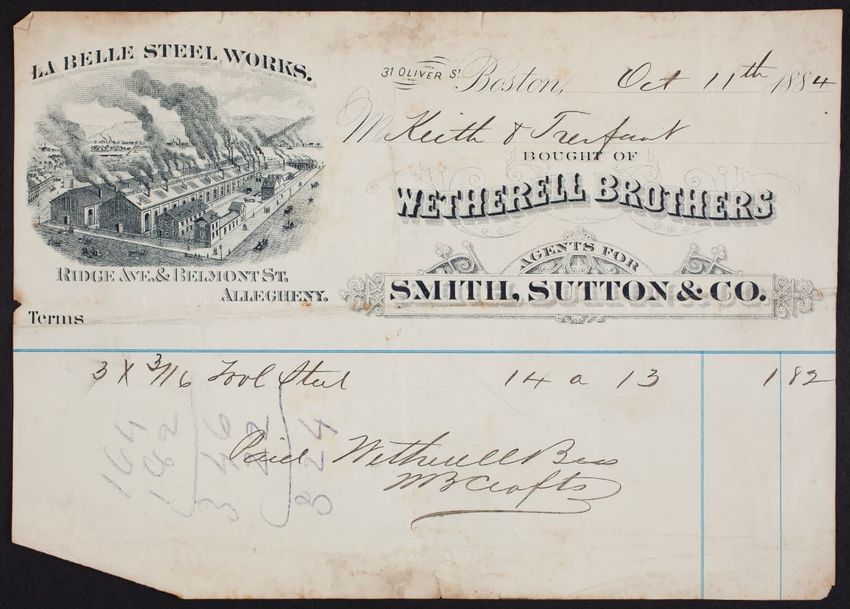 LA BELLE STEEL WORKS.
31 OLIVER ST. Boston, Oct 11th 1884
M Keith &
BOUGHT OF
WETHERELL BROTHERS
AGENTS FOR
SMITH, SUTTON & CO.
RIDGE AVE. & BELMONT ST.
ALLEGHENY.
Terms
3 X 3/16 Tool Steel 14 a 13 1 82
Paid Wetherell Bros
W B Crofts
164
182
346
824